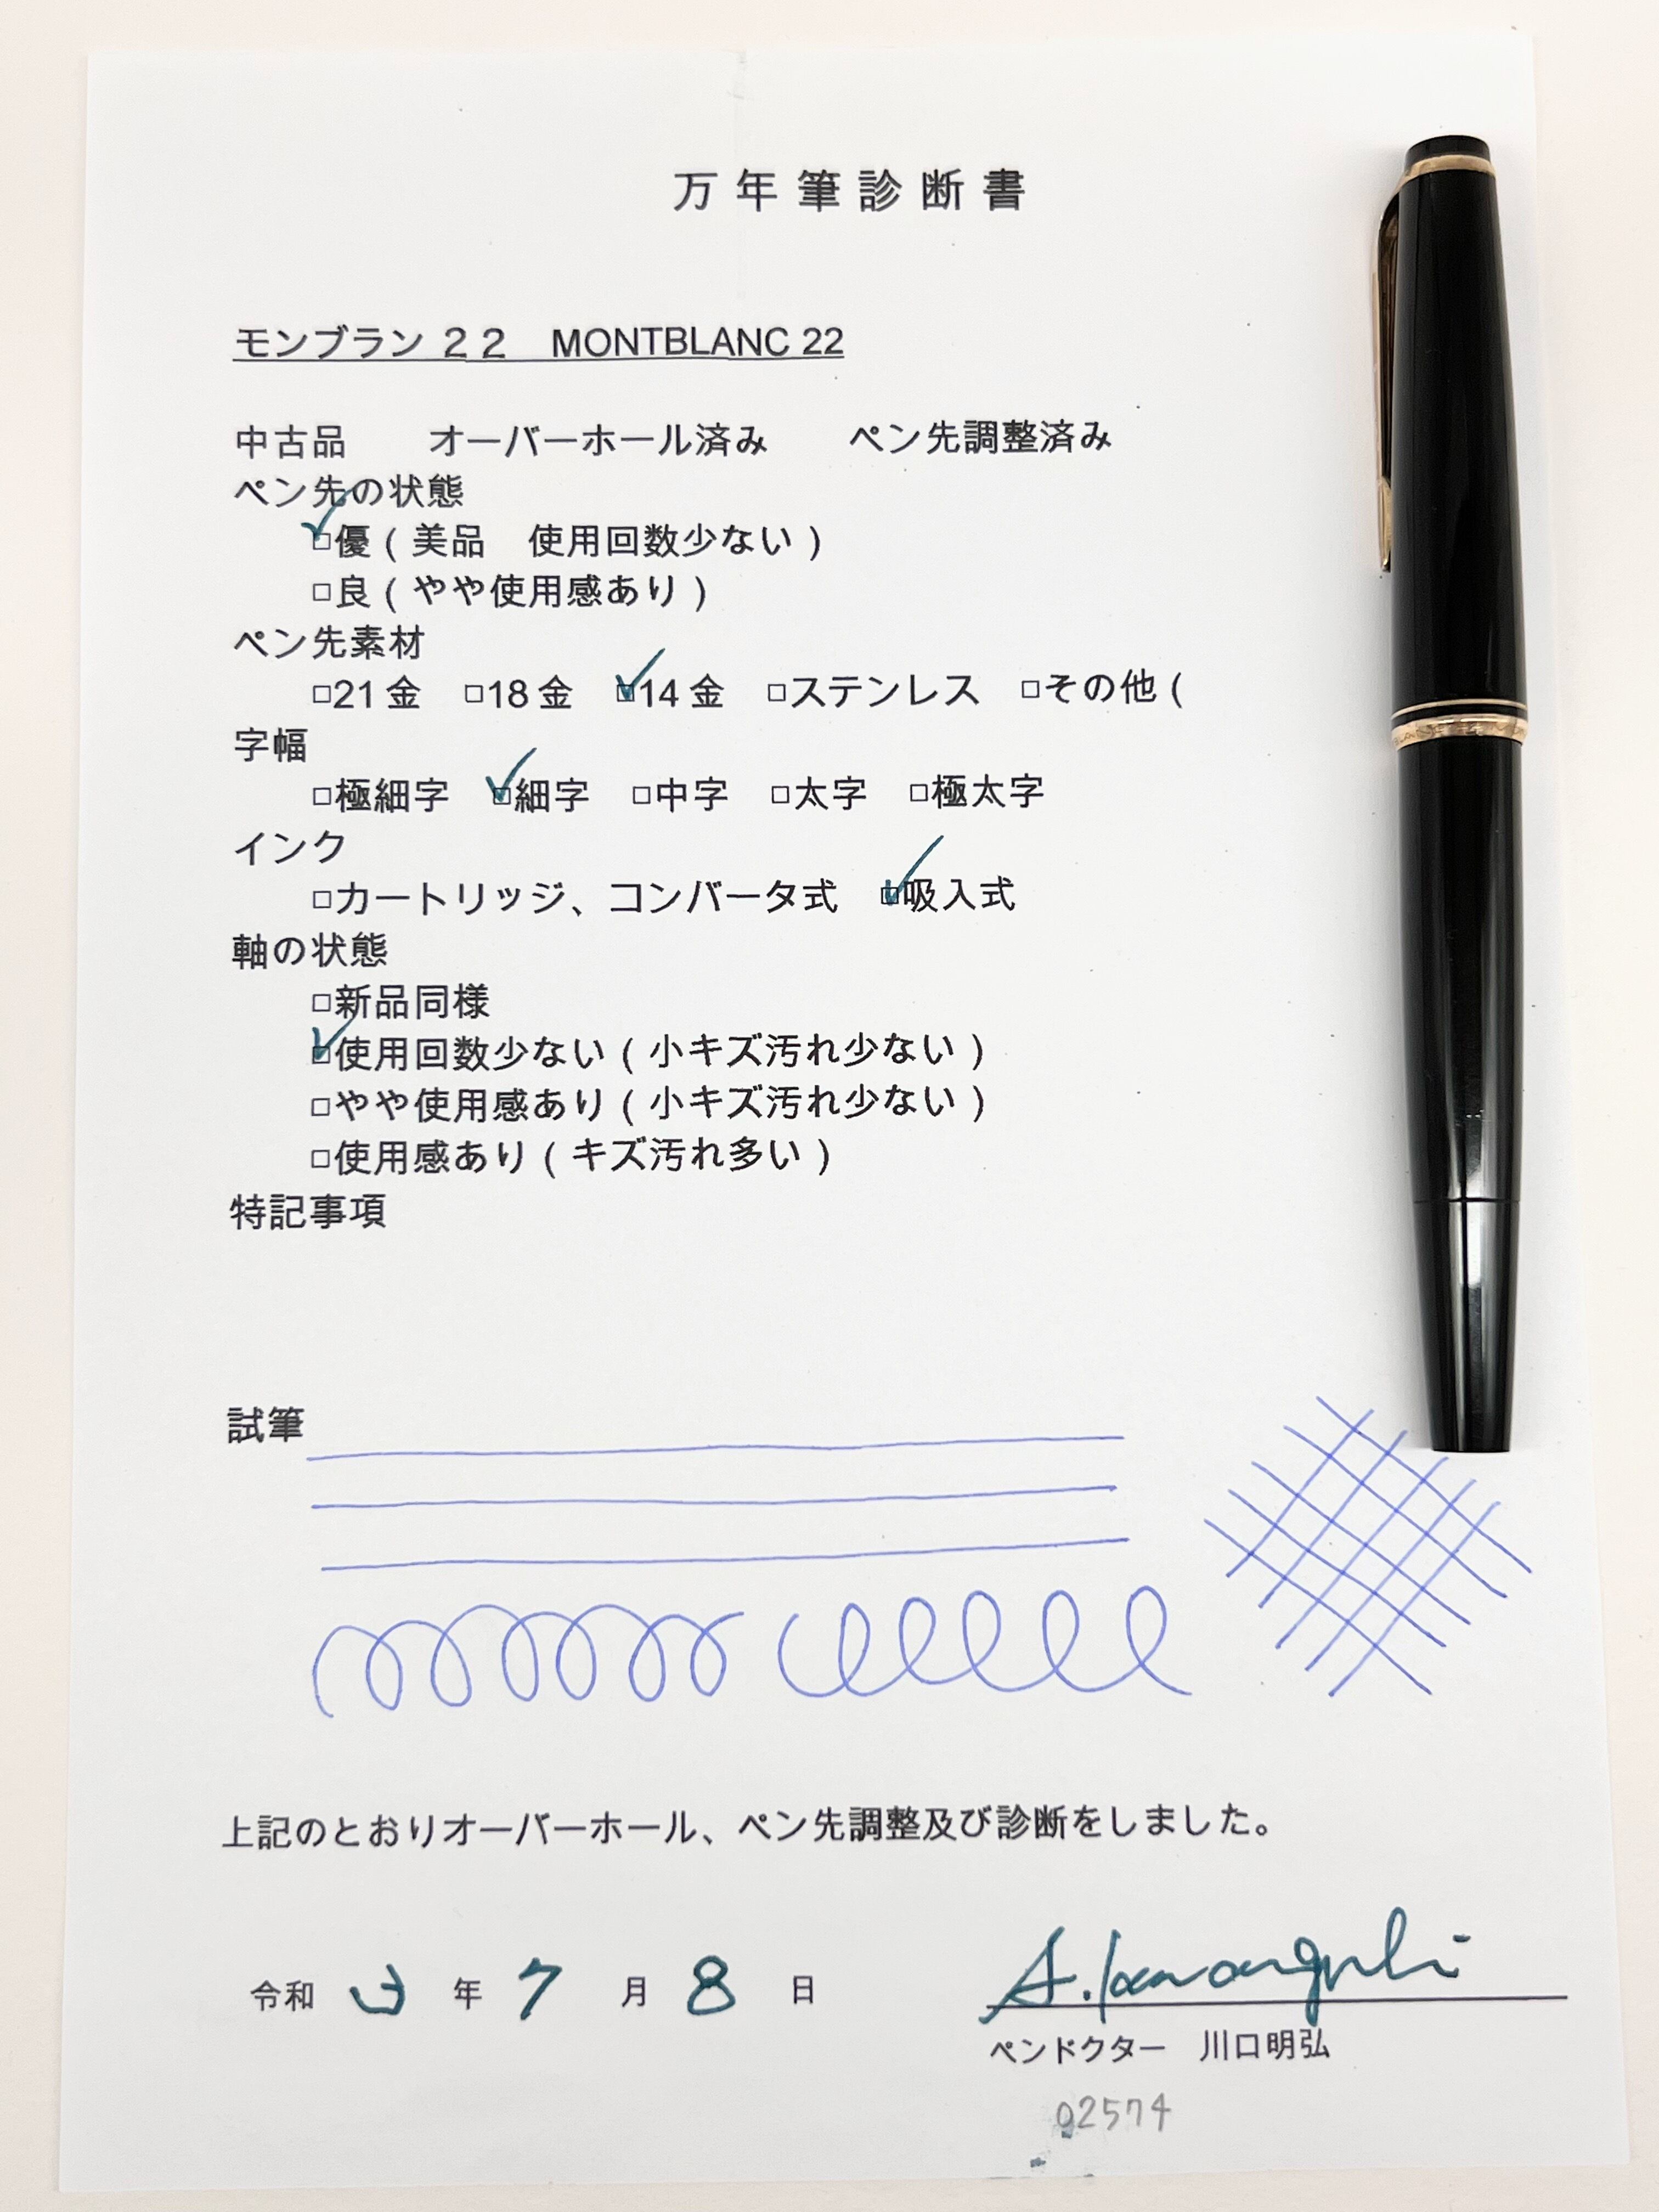 万年筆診断書
モンブラン ２２　MONTBLANC 22
中古品　　オーバーホール済み　　ペン先調整済み
ペン先の状態
☑優（美品　使用回数少ない）
□良（やや使用感あり）
ペン先素材
□21金　□18金　☑14金　□ステンレス　□その他（
字幅
□極細字　☑細字　□中字　□太字　□極太字
インク
□カートリッジ、コンバータ式　☑吸入式
軸の状態
□新品同様
☑使用回数少ない（小キズ汚れ少ない）
□やや使用感あり（小キズ汚れ少ない）
□使用感あり（キズ汚れ多い）
特記事項
試筆
上記のとおりオーバーホール、ペン先調整及び診断をしました。
令和 3 年 7 月 8 日
A. Kawaguchi
ペンドクター　川口明弘
02574